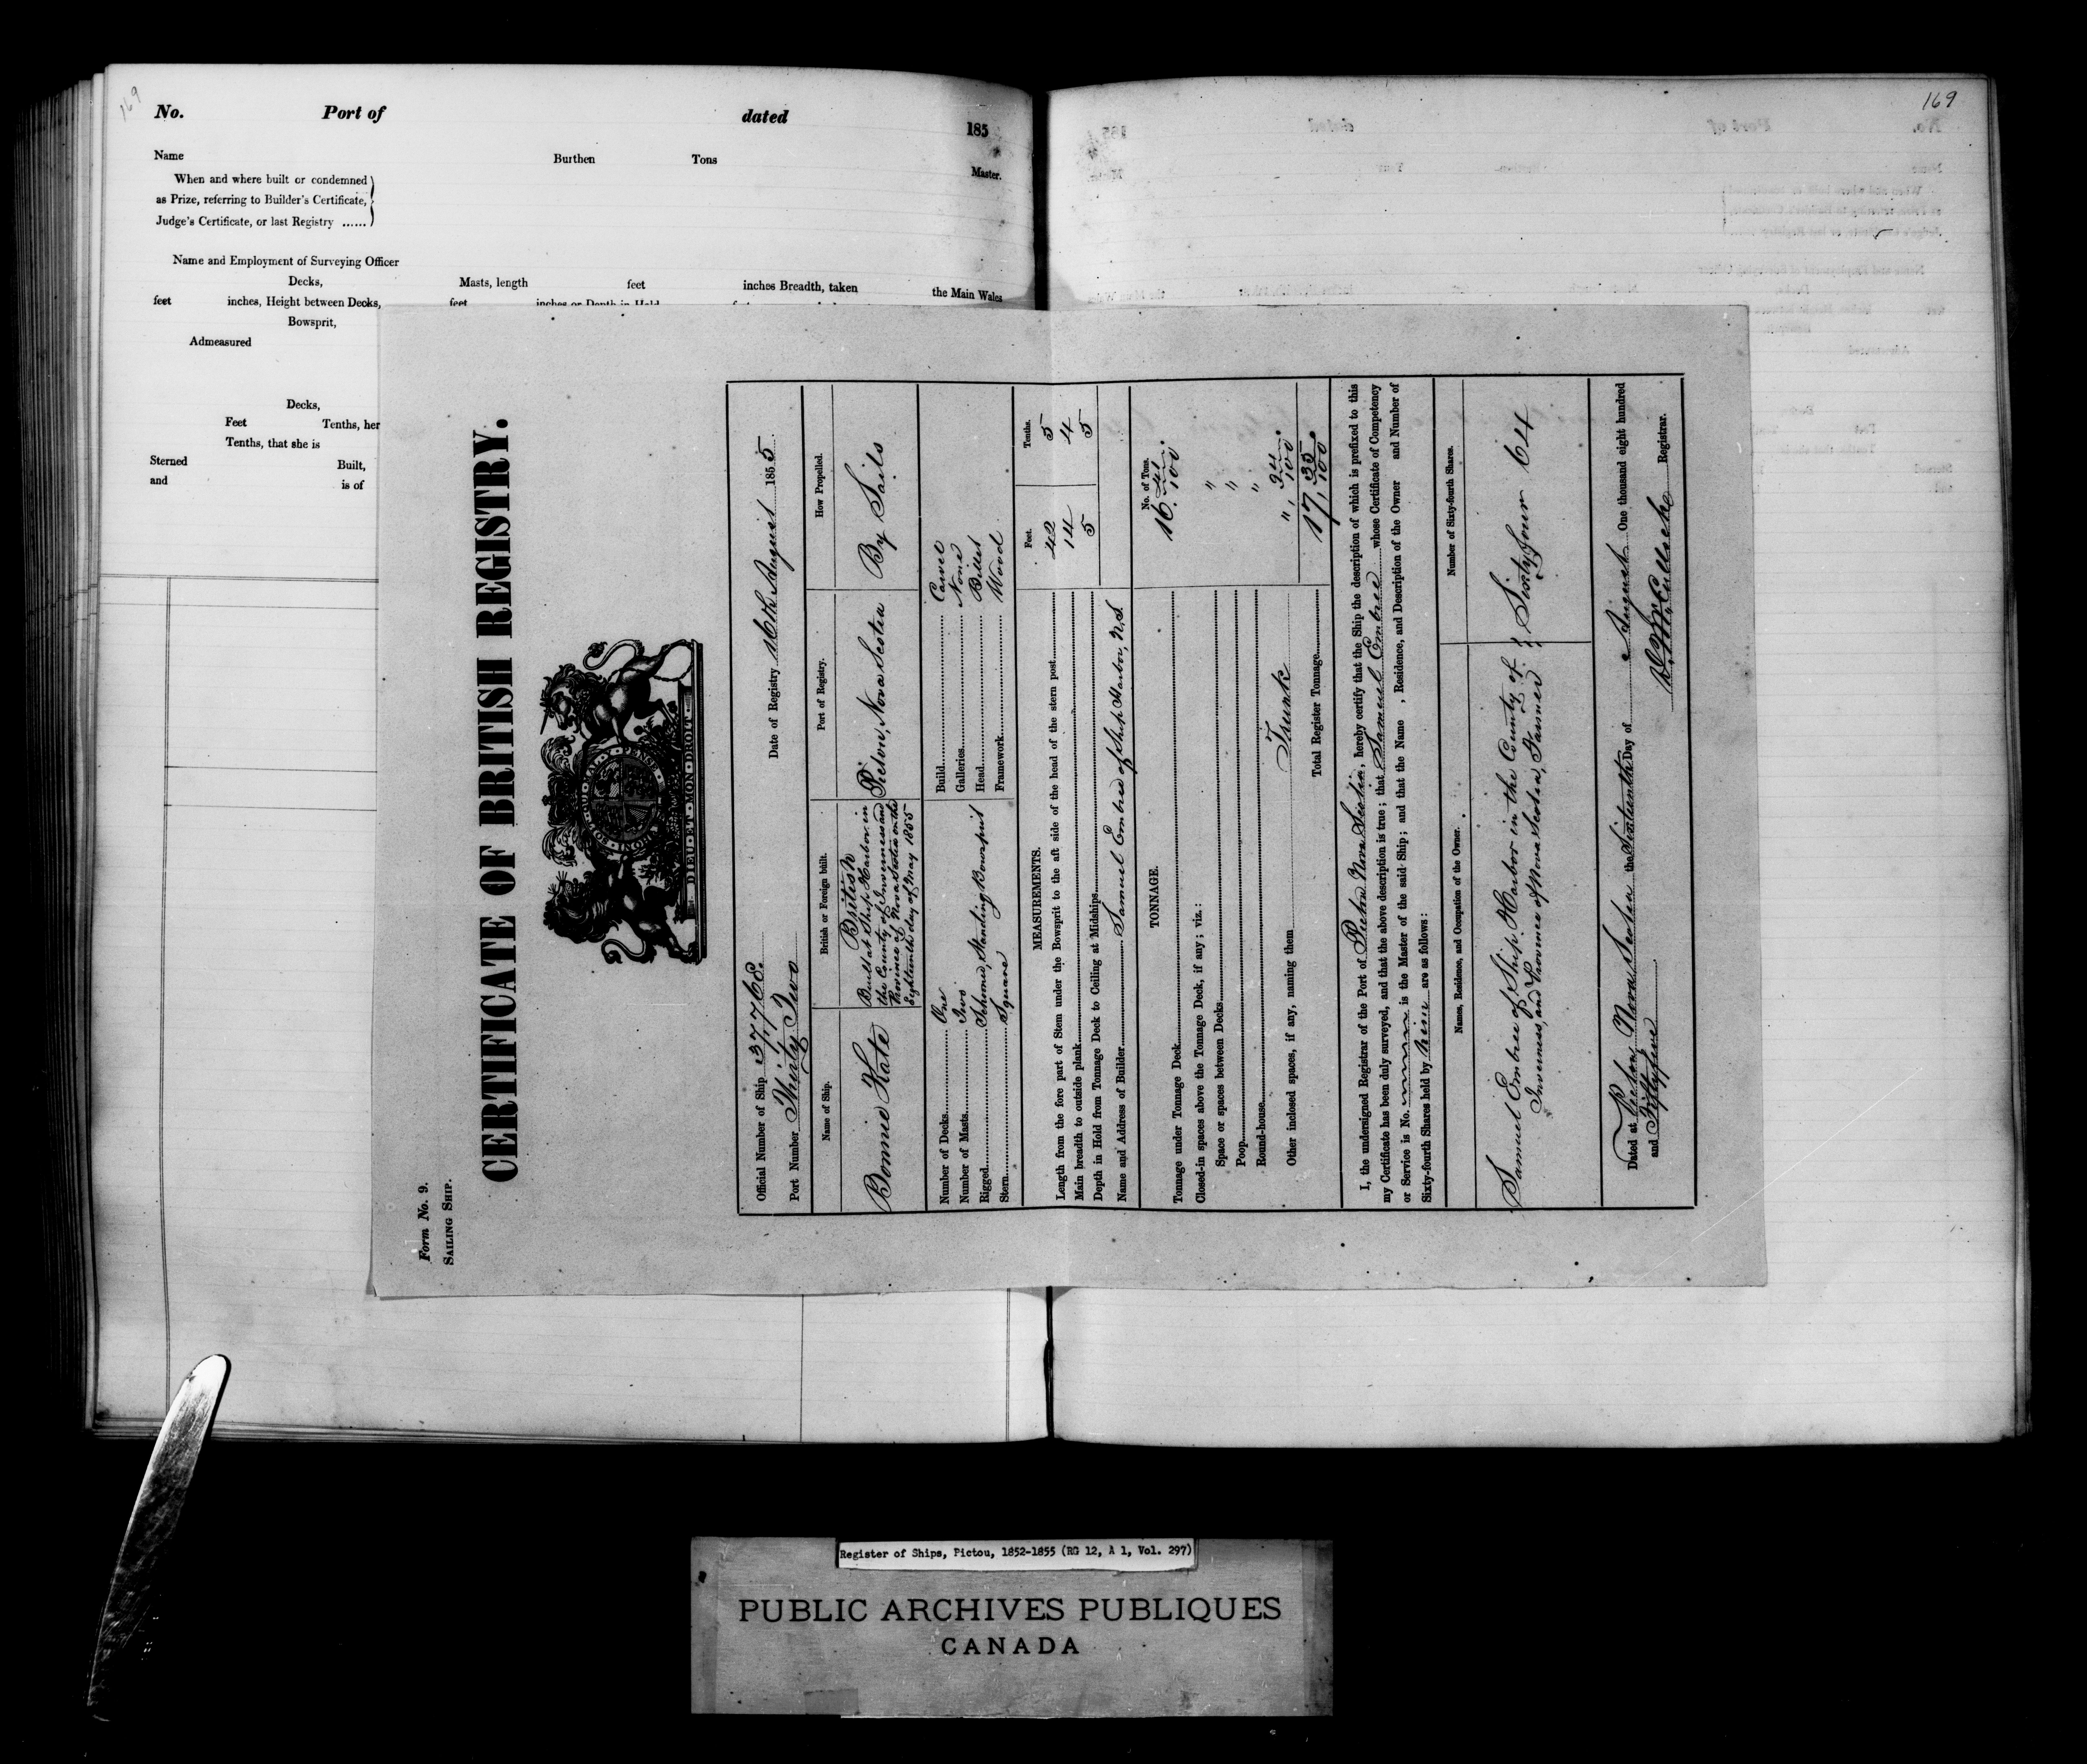 169
No. Port of dated 185
Name Burthen Tons Master.
When and where built or condemned
as Prize, referring to Builder's Certificate,
Judge's Certificate, or last Registry ......
Name and Employment of Surveying Officer
Decks, Masts, length feet inches Breadth, taken the Main Wales
feet inches, Height between Decks, feet inches or Depth in Hold
Bowsprit,
Admeasured
Decks,
Feet Tenths, her
Tenths, that she is
Sterned Built,
and is of
169
Form No. 9.
SAILING SHIP.
CERTIFICATE OF BRITISH REGISTRY.
DIEU·ET·MON·DROIT
Official Number of Ship 37768. Date of Registry 16th August 1855.
Port Number Thirty Two
Name of Ship. British or Foreign built. Port of Registry. How Propelled.
Bonnie Kate
British
Built at Ship Harbor in
the County of Inverness and
Province of Nova Scotia on the
Eighteenth day of May 1855
Pictou, Nova Scotia
By Sails
Number of Decks One Build Carvel
Number of Masts Two Galleries None
Rigged Schooner, Standing Bowsprit Head Billet
Stern Square Framework Wood
MEASUREMENTS. Feet. Tenths.
Length from the fore part of Stem under the Bowsprit to the aft side of the head of the stern post 42 5
Main breadth to outside plank 14 4
Depth in Hold from Tonnage Deck to Ceiling at Midships 5 5
Name and Address of Builder Samuel Embree of Ship Harbor, N.S.
TONNAGE. No. of Tons.
Tonnage under Tonnage Deck 16. 41/100
Closed-in spaces above the Tonnage Deck, if any; viz.:
Space or spaces between Decks "
Poop "
Round-house "
Other inclosed spaces, if any, naming them Trunk " 94/100.
Total Register Tonnage 17, 35/100
I, the undersigned Registrar of the Port of Pictou Nova Scotia, hereby certify that the Ship the description of which is prefixed to this
my Certificate has been duly surveyed, and that the above description is true; that Samuel Embree whose Certificate of Competency
or Service is No. is the Master of the said Ship; and that the Name , Residence, and Description of the Owner and Number of
Sixty-fourth Shares held by him are as follows:
Names, Residence, and Occupation of the Owner. Number of Sixty-fourth Shares.
Samuel Embree of Ship Harbor in the County of
Inverness, and Province of Nova Scotia, Farmer
Sixty four 64
Dated at Pictou, Nova Scotia the Sixteenth Day of August One thousand eight hundred
and Fifty five
Registrar.
Register of Ships, Pictou, 1852-1855 (RG 12, A 1, Vol. 297)
PUBLIC ARCHIVES PUBLIQUES
CANADA